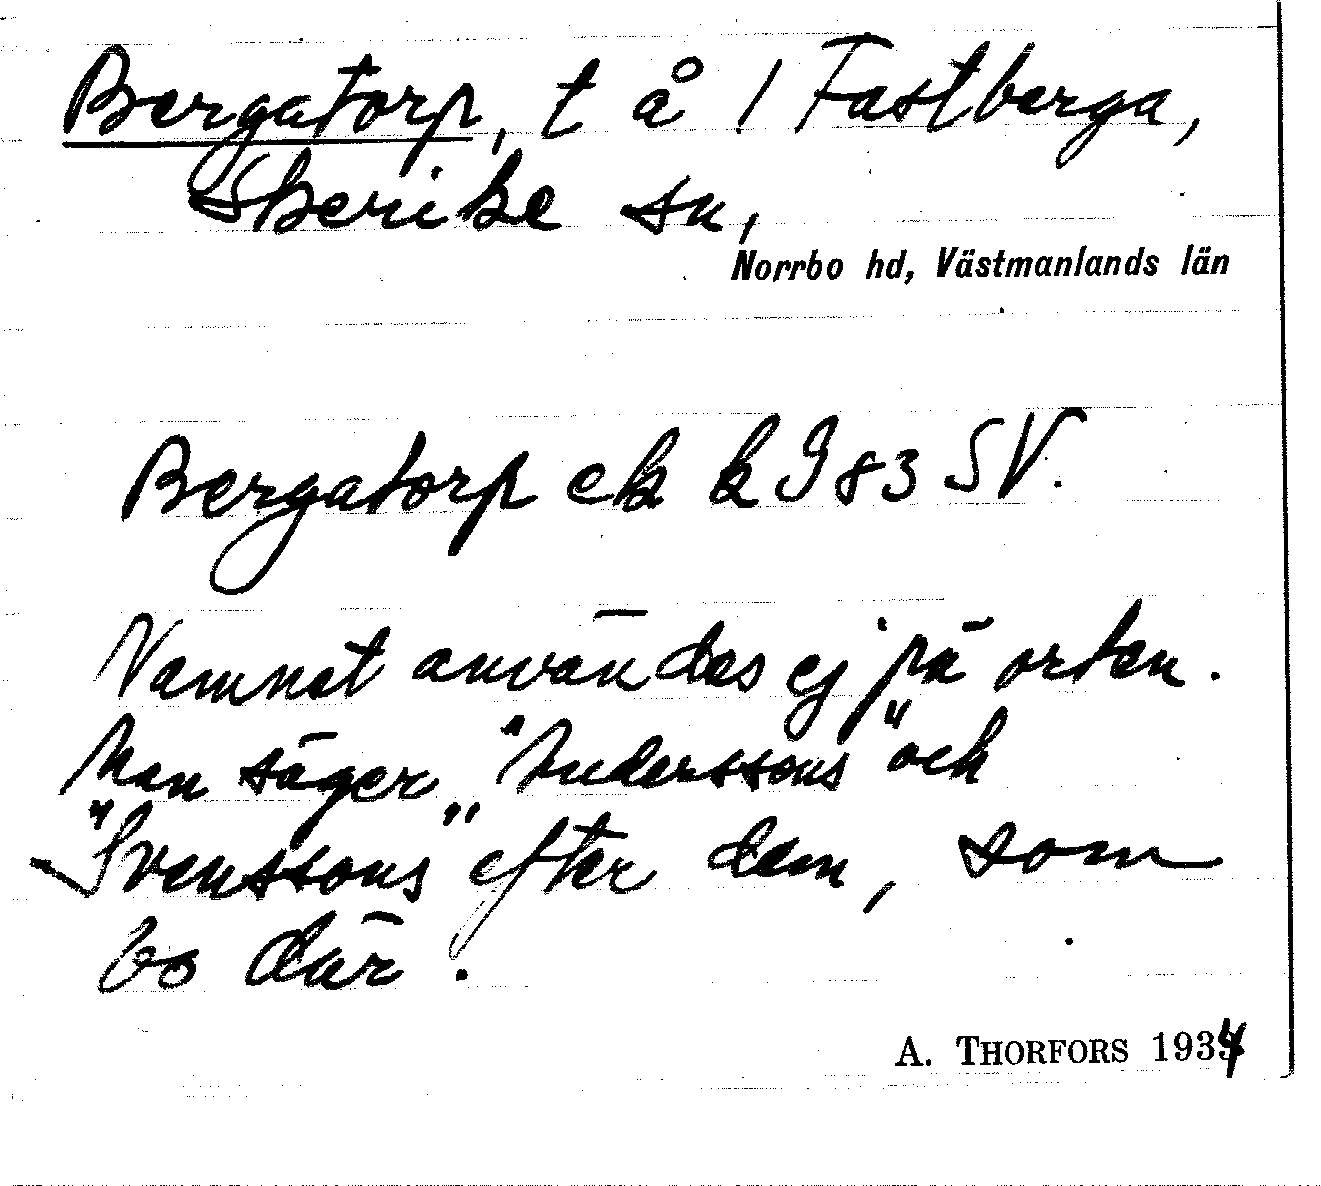 Bergatorp, t å 1 Fastberga,
Skerike sn,
Norrbo hd, Västmanlands län
Bergatorp ek k J 83 SV.
Namnet användes ej på orten.
Man säger "Anderssons" och
"Svenssons" efter dem, som
bo där.
A. THORFORS 1934